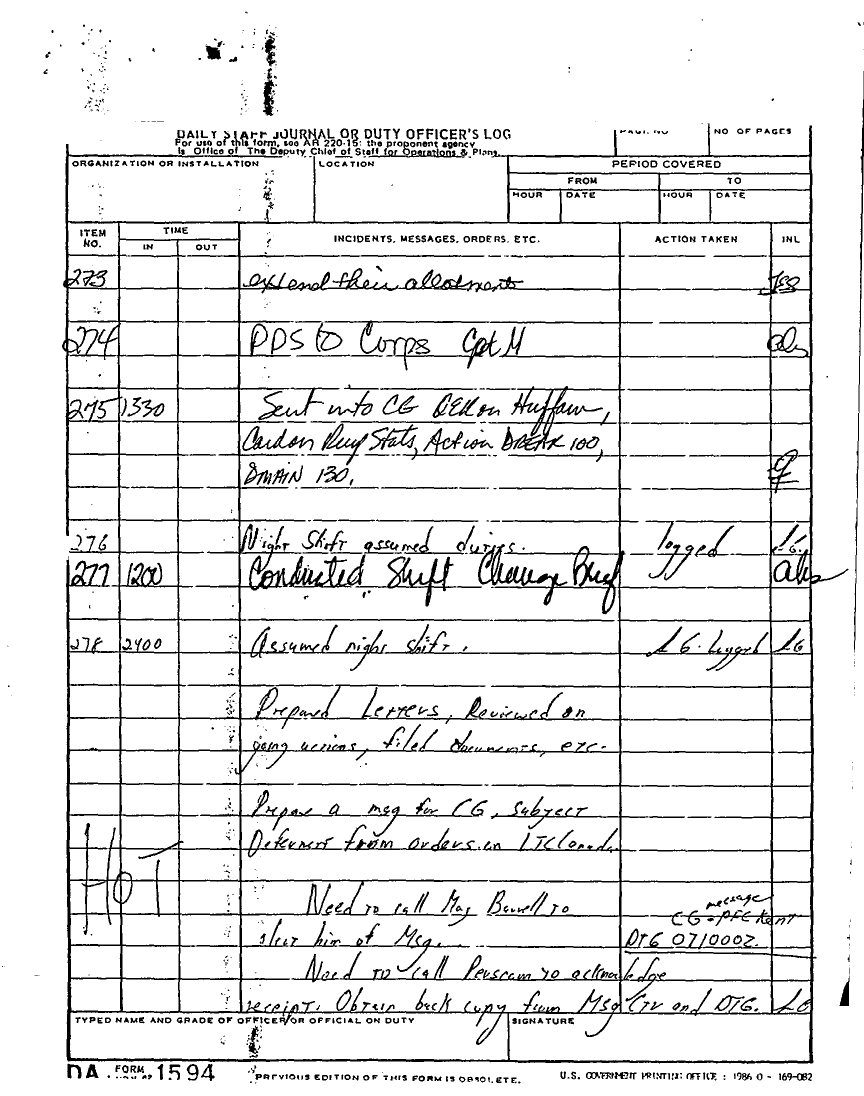 DAILY STAFF JOURNAL OR DUTY OFFICER'S LOG
For use of this form, see AR 220-15; the proponent agency
is Office of The Deputy Chief of Staff for Operations & Plans.
PAGE NO
NO OF PAGES
ORGANIZATION OR INSTALLATION
LOCATION
PERIOD COVERED
FROM
TO
HOUR
DATE
HOUR
DATE
ITEM NO.
TIME
IN
OUT
INCIDENTS, MESSAGES, ORDERS, ETC.
ACTION TAKEN
INL
273 extend their allotments
274 PDS to Corps Cpt M
275 1330 Sent into CG on Huffam,
Stats, Action DREAR 100,
DMAIN 130.
276 Night Shift assumed duties. logged
277 1200 Conducted Shift Change Brief
278 2400 Assumed night shift. LG. logged LG
Prepared Letters, Reviewed on
going actions, filed documents, etc.
Prepare a msg for CG, Subject
Deferment from orders on LTC
HOT
Need to call Maj to
him of Msg.
message
CG - PFC Kent
DTG 071000Z.
Need to call Perscom to acknowledge
receipt. Obtain back copy from Msg Ctr and DTG. LG
TYPED NAME AND GRADE OF OFFICER/OR OFFICIAL ON DUTY
SIGNATURE
DA FORM 1594
PREVIOUS EDITION OF THIS FORM IS OBSOLETE.
U.S. GOVERNMENT PRINTING OFFICE : 1986 O - 169-082